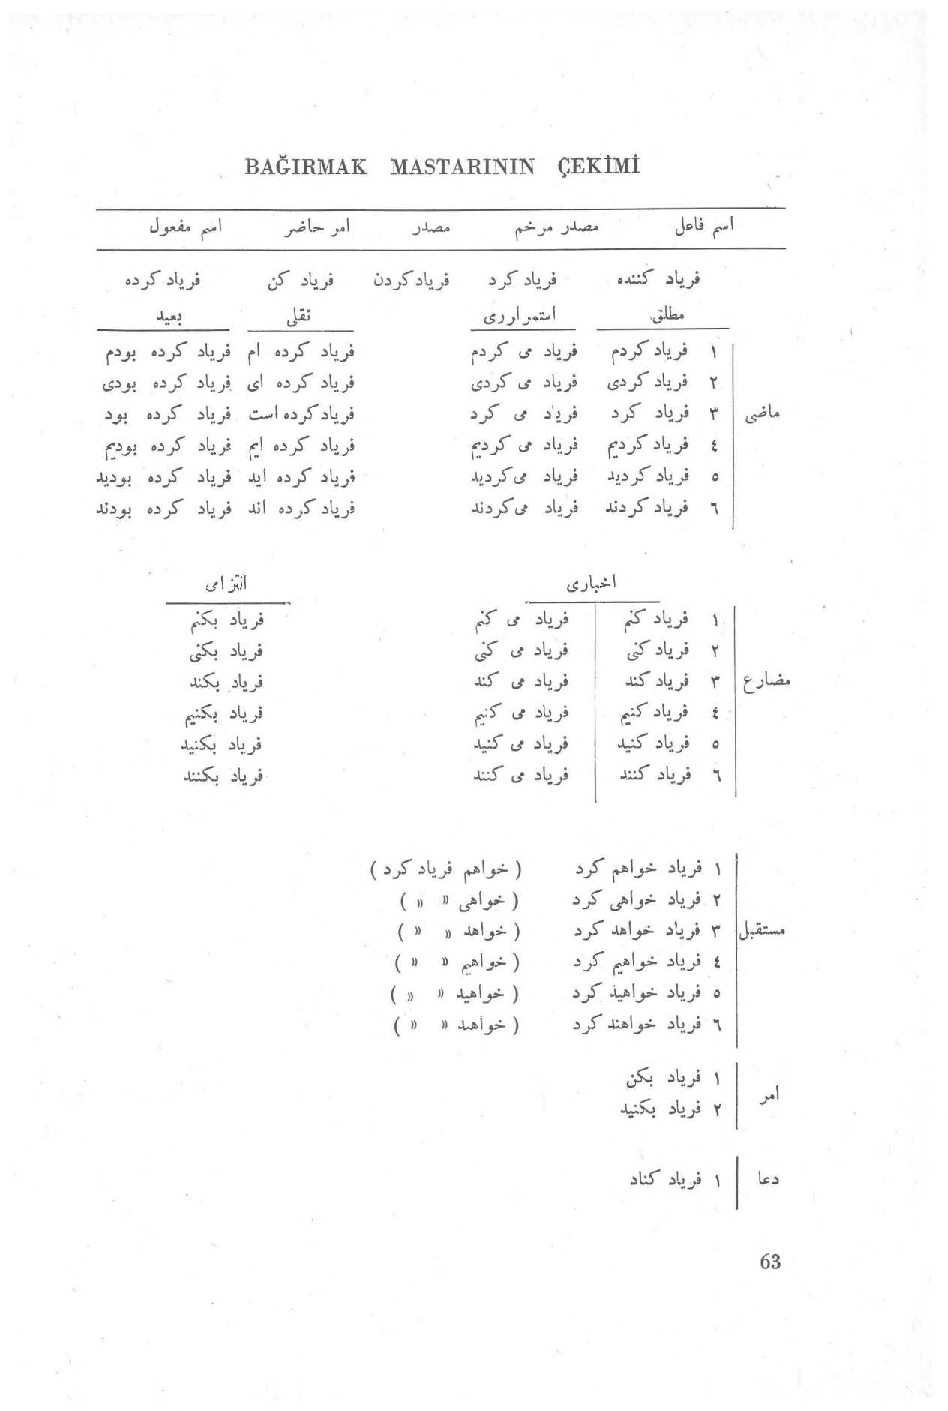 BAĞIRMAK MASTARININ ÇEKİMİ
اسم فاعل مصدر مرخم مصدر امر حاضر اسم مفعول
فریاد کننده فریاد کرد فریاد کردن فریاد کن فریاد کرده
مطلق استمرارری نقلی بعید
۱ فریاد کردم فریاد می کردم فریاد کرده ام فریاد کرده بودم
۲ فریاد کردی فریاد می کردی فریاد کرده ای فریاد کرده بودی
ماضی ۳ فریاد کرد فریاد می کرد فریاد کرده است فریاد کرده بود
٤ فریاد کردیم فریاد می کردیم فریاد کرده ایم فریاد کرده بودیم
٥ فریاد کردید فریاد می کردید فریاد کرده اید فریاد کرده بودید
٦ فریاد کردند فریاد می کردند فریاد کرده اند فریاد کرده بودند
اخباری التزامی
۱ فریاد کنم فریاد می کنم فریاد بکنم
۲ فریاد کنی فریاد می کنی فریاد بکنی
مضارع ۳ فریاد کند فریاد می کند فریاد بکند
٤ فریاد کنیم فریاد می کنیم فریاد بکنیم
٥ فریاد کنید فریاد می کنید فریاد بکنید
٦ فریاد کنند فریاد می کنند فریاد بکنند
۱ فریاد خواهم کرد ( خواهم فریاد کرد )
۲ فریاد خواهی کرد ( خواهی » » )
مستقبل ۳ فریاد خواهد کرد ( خواهد » » )
٤ فریاد خواهیم کرد ( خواهیم » » )
٥ فریاد خواهید کرد ( خواهید » » )
٦ فریاد خواهند کرد ( خواهند » » )
۱ فریاد بکن
امر
۲ فریاد بکنید
دعا ۱ فریاد کناد
63